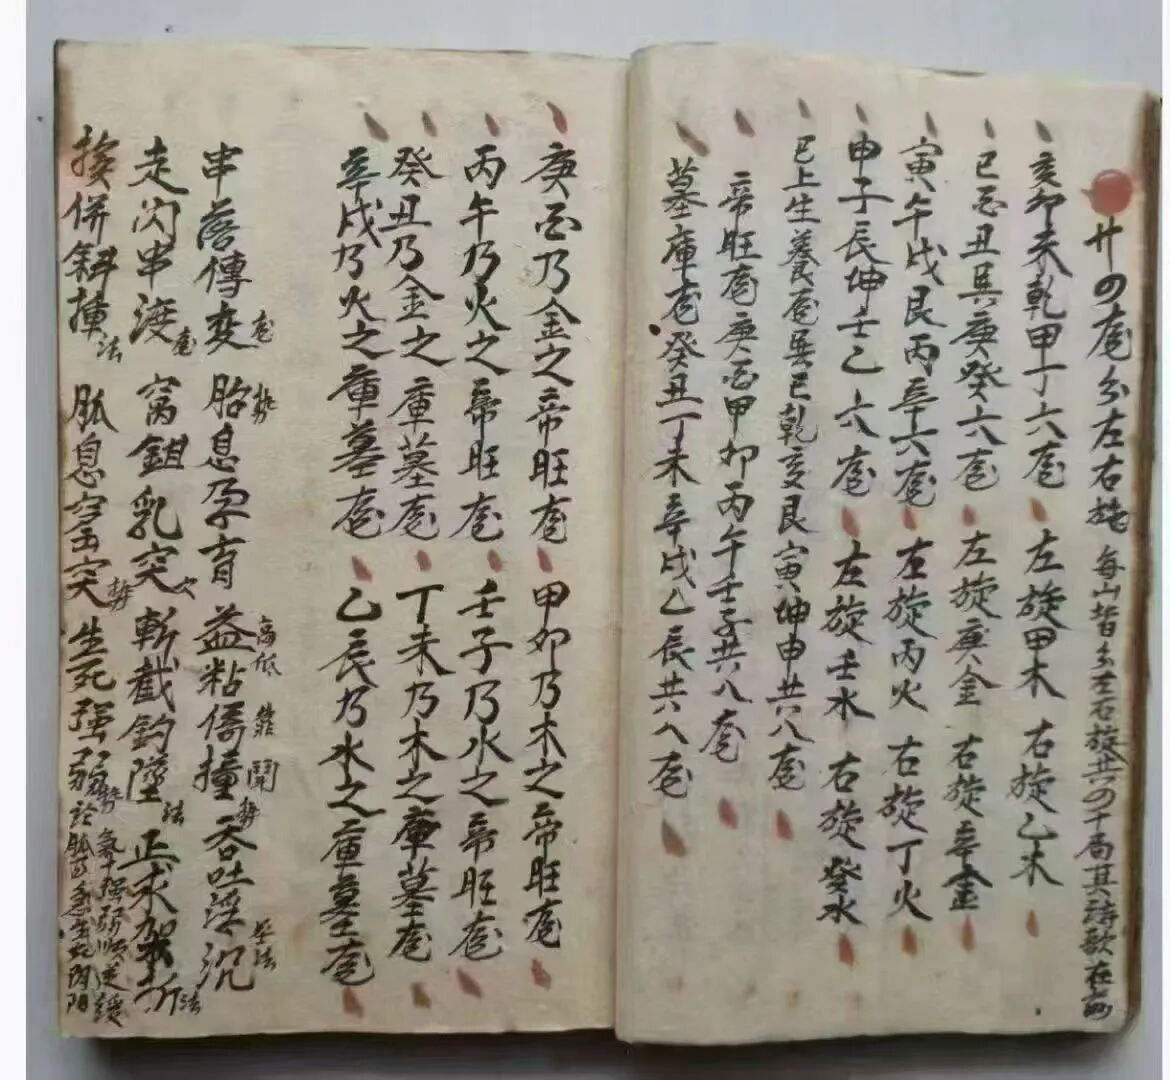 廿四龍分左右旋 每山皆分左右旋共四十局其詩歌在前
亥卯未乾甲丁六龍 左旋甲木 右旋乙木
巳酉丑巽庚癸六龍 左旋庚金 右旋辛金
寅午戌艮丙辛六龍 左旋丙火 右旋丁火
申子辰坤壬乙六龍 左旋壬水 右旋癸水
已上生養龍巽巳乾亥艮寅坤申共八龍
帝旺龍庚酉甲卯丙午壬子共八龍
墓庫龍癸丑丁未辛戌乙辰共八龍
庚酉乃金之帝旺龍 甲卯乃木之帝旺龍
丙午乃火之帝旺龍 壬子乃水之帝旺龍
癸丑乃金之庫墓龍 丁未乃木之庫墓龍
辛戌乃火之庫墓龍 乙辰乃水之庫墓龍
串 傳变龍 胎息孕育勢 益粘倚撞 高低 鬪勢 吞吐浮沉 法
走闪串渡龍 窩鉗乳突穴 斬截釣墜法 正求架折法
挨併斜撞法 胍息 突勢 生死强弱勢